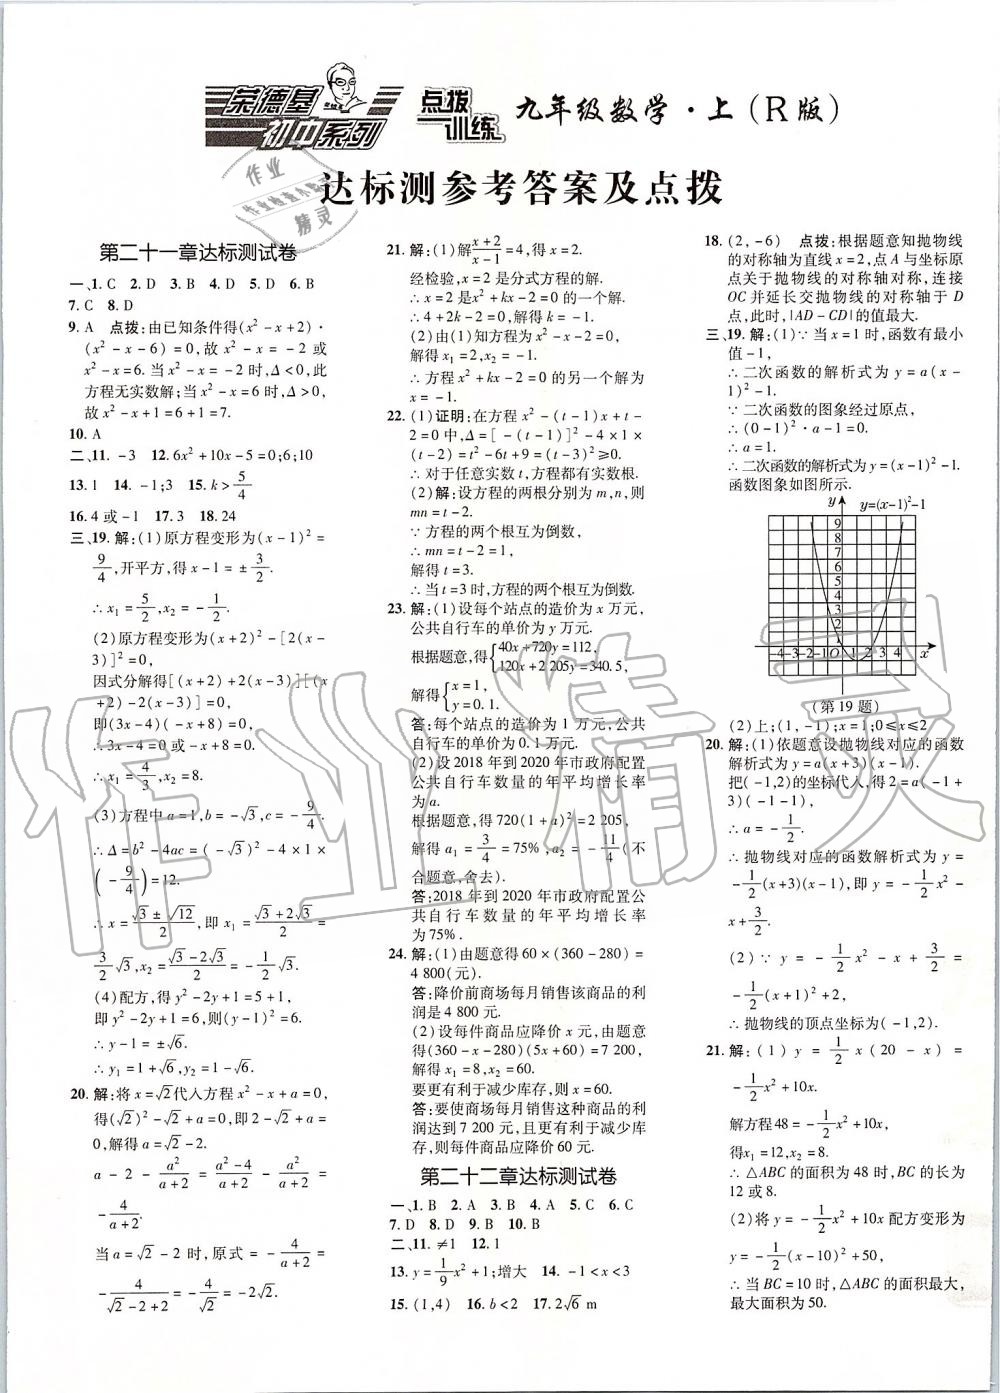 荣德基
初中系列
点拨
训练
九年级数学·上(R版)
达标测参考答案及点拨
第二十一章达标测试卷
一、1. C 2. D 3. B 4. D 5. D 6. B
7. C 8. D
9. A 点拨:由已知条件得(x²-x+2)·
(x²-x-6)=0,故 x²-x=-2 或
x²-x=6. 当 x²-x=-2 时,Δ<0,此
方程无实数解;当 x²-x=6 时,Δ>0,
故 x²-x+1=6+1=7.
10. A
二、11. -3 12. 6x²+10x-5=0;6;10
13. 1 14. -1;3 15. k>5/4
16. 4 或 -1 17. 3 18. 24
三、19. 解:(1)原方程变形为(x-1)²=
9/4,开平方,得 x-1=±3/2.
∴x₁=5/2,x₂=-1/2.
(2)原方程变形为(x+2)²-[2(x-
3)]²=0,
因式分解得[(x+2)+2(x-3)][(x
+2)-2(x-3)]=0,
即(3x-4)(-x+8)=0,
∴3x-4=0 或 -x+8=0.
∴x₁=4/3,x₂=8.
(3)方程中 a=1,b=-√3,c=-9/4.
∴Δ=b²-4ac=(-√3)²-4×1×
(-9/4)=12.
∴x=(√3±√12)/2,即 x₁=(√3+2√3)/2=
3/2√3,x₂=(√3-2√3)/2=-1/2√3.
(4)配方,得 y²-2y+1=5+1,
即 y²-2y+1=6,则(y-1)²=6.
∴y-1=±√6.
∴y₁=1+√6,y₂=1-√6.
20. 解:将 x=√2代入方程 x²-x+a=0,
得(√2)²-√2+a=0,即 2-√2+a=
0,解得 a=√2-2.
a-2-a²/(a+2)=(a²-4)/(a+2)-a²/(a+2)=
-4/(a+2).
当 a=√2-2 时,原式=-4/(a+2)=
-4/(√2-2+2)=-4/√2=-2√2.
21. 解:(1)解(x+2)/(x-1)=4,得 x=2.
经检验,x=2 是分式方程的解.
∴x=2 是 x²+kx-2=0 的一个解.
∴4+2k-2=0,解得 k=-1.
(2)由(1)知方程为 x²-x-2=0,
解得 x₁=2,x₂=-1.
∴方程 x²+kx-2=0 的另一个解为
x=-1.
22. (1)证明:在方程 x²-(t-1)x+t-
2=0 中,Δ=[-(t-1)]²-4×1×
(t-2)=t²-6t+9=(t-3)²≥0.
∴对于任意实数 t,方程都有实数根.
(2)解:设方程的两根分别为 m,n,则
mn=t-2.
∵方程的两个根互为倒数,
∴mn=t-2=1,
解得 t=3.
∴当 t=3 时,方程的两个根互为倒数.
23. 解:(1)设每个站点的造价为 x 万元,
公共自行车的单价为 y 万元.
根据题意,得{40x+720y=112,
120x+2 205y=340.5,
解得{x=1,
y=0.1.
答:每个站点的造价为 1 万元,公共
自行车的单价为 0.1 万元.
(2)设 2018 年到 2020 年市政府配置
公共自行车数量的年平均增长率
为 a.
根据题意,得 720(1+a)²=2 205,
解得 a₁=3/4=75%,a₂=-11/4(不
合题意,舍去).
答:2018 年到 2020 年市政府配置公
共自行车数量的年平均增长率
为 75%.
24. 解:(1)由题意得 60×(360-280)=
4 800(元).
答:降价前商场每月销售该商品的利
润是 4 800 元.
(2)设每件商品应降价 x 元,由题意
得(360-x-280)(5x+60)=7 200,
解得 x₁=8,x₂=60.
要更有利于减少库存,则 x=60.
答:要使商场每月销售这种商品的利
润达到 7 200 元,且更有利于减少库
存,则每件商品应降价 60 元.
第二十二章达标测试卷
一、1. B 2. A 3. B 4. A 5. C 6. C
7. D 8. D 9. B 10. B
二、11. ≠1 12. 1
13. y=1/9x²+1;增大 14. -1<x<3
15. (1,4) 16. b<2 17. 2√6 m
18. (2,-6) 点拨:根据题意知抛物线
的对称轴为直线 x=2,点 A 与坐标原
点关于抛物线的对称轴对称,连接
OC 并延长交抛物线的对称轴于 D
点,此时,|AD-CD|的值最大.
三、19. 解:(1)∵当 x=1 时,函数有最小
值 -1,
∴二次函数的解析式为 y=a(x-
1)²-1.
∵二次函数的图象经过原点,
∴(0-1)²·a-1=0.
∴a=1.
∴二次函数的解析式为 y=(x-1)²-1.
函数图象如图所示.
y y=(x-1)²-1
9
8
7
6
5
4
3
2
1
-4-3-2-1 O 1 2 3 4 x
(第 19 题)
(2)上;(1,-1);x=1;0≤x≤2
20. 解:(1)依题意设抛物线对应的函数
解析式为 y=a(x+3)(x-1).
把(-1,2)的坐标代入,得 2=a(-1+
3)(-1-1),
∴a=-1/2.
∴抛物线对应的函数解析式为 y=
-1/2(x+3)(x-1),即 y=-1/2x²-
x+3/2.
(2)∵y=-1/2x²-x+3/2=
-1/2(x+1)²+2,
∴抛物线的顶点坐标为(-1,2).
21. 解:(1)y=1/2x(20-x)=
-1/2x²+10x.
解方程48=-1/2x²+10x,
得x₁=12,x₂=8.
∴△ABC 的面积为 48 时,BC 的长为
12 或 8.
(2)将 y=-1/2x²+10x 配方变形为
y=-1/2(x-10)²+50,
∴当 BC=10 时,△ABC 的面积最大,
最大面积为 50.
作业
作业检查小助手
精灵
作业精灵